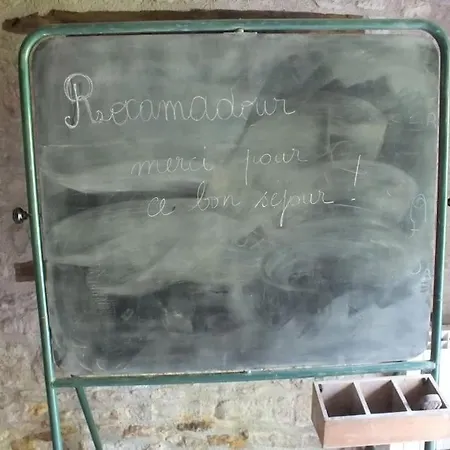 Rocamadour
merci pour
ce bon séjour !